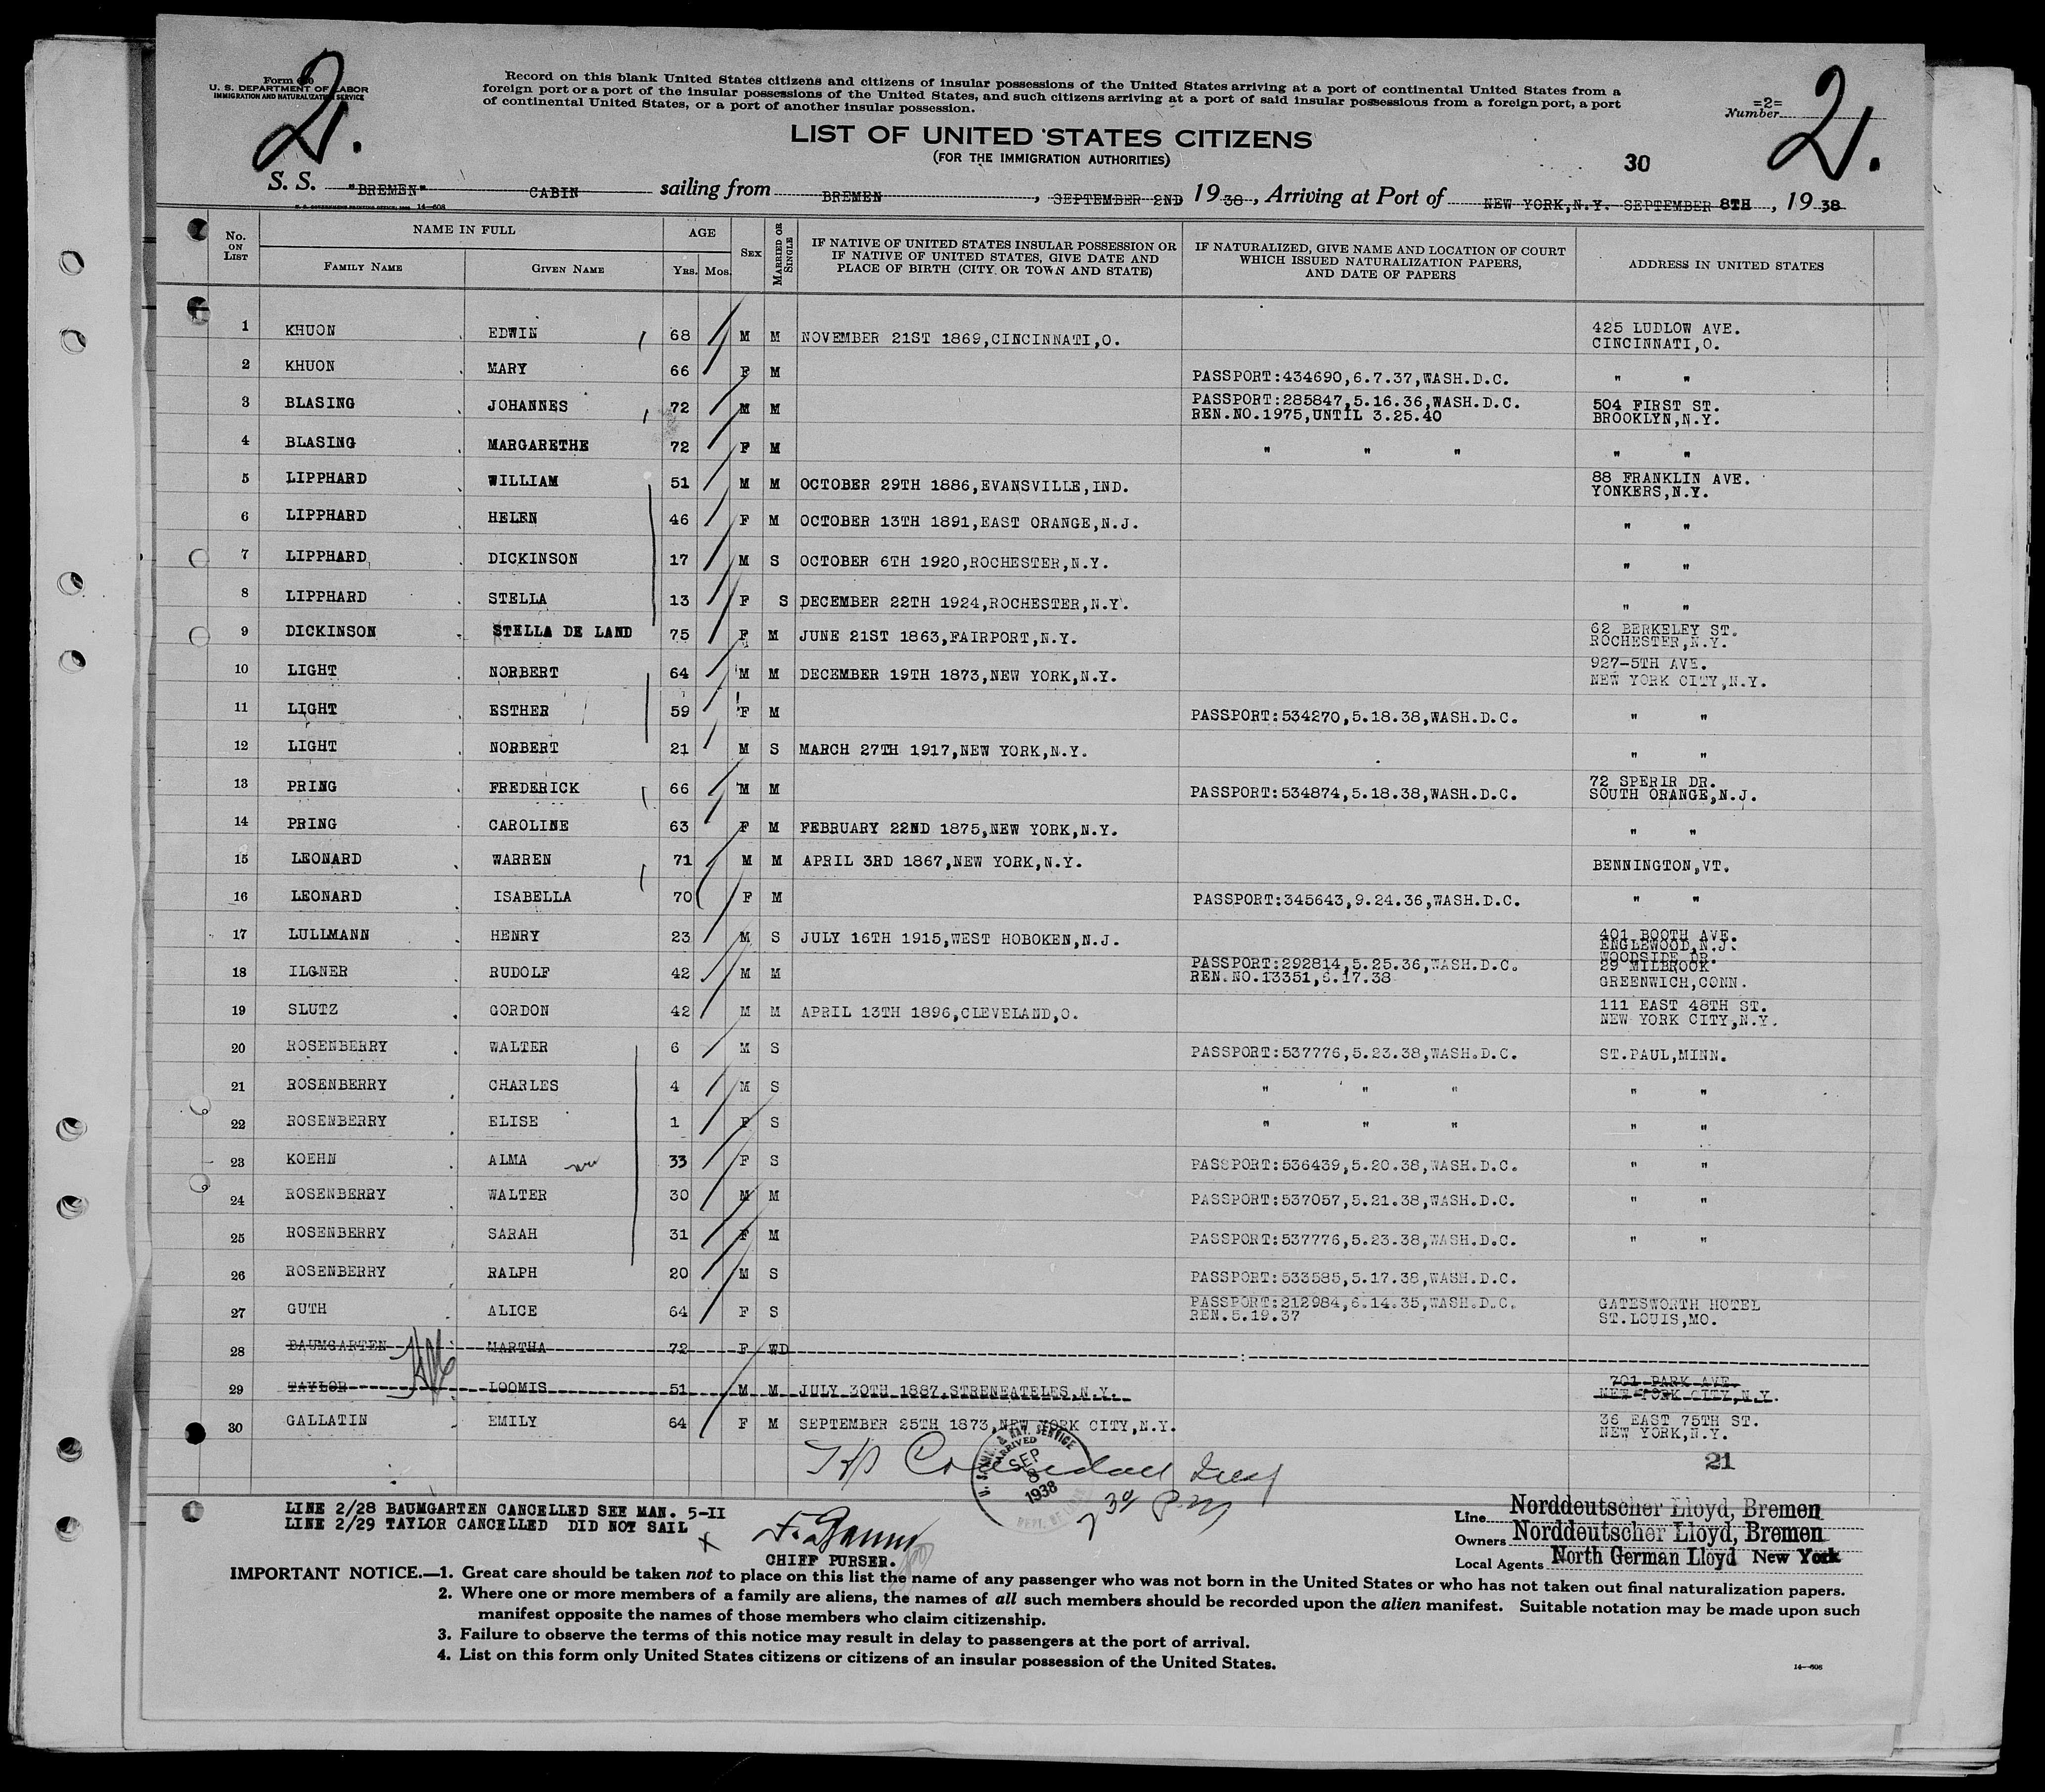 Form 630
U. S. DEPARTMENT OF LABOR
IMMIGRATION AND NATURALIZATION SERVICE
2.
Record on this blank United States citizens and citizens of insular possessions of the United States arriving at a port of continental United States from a
foreign port or a port of the insular possessions of the United States, and such citizens arriving at a port of said insular possessions from a foreign port, a port
of continental United States, or a port of another insular possession.
=2=
Number
2.
LIST OF UNITED STATES CITIZENS
(FOR THE IMMIGRATION AUTHORITIES)
30
S. S. "BREMEN" CABIN sailing from BREMEN, SEPTEMBER 2ND 19 38, Arriving at Port of NEW YORK,N.Y. SEPTEMBER 8TH, 19 38
14-608
No. ON LIST NAME IN FULL AGE SEX MARRIED OR SINGLE IF NATIVE OF UNITED STATES INSULAR POSSESSION OR IF NATIVE OF UNITED STATES, GIVE DATE AND PLACE OF BIRTH (CITY OR TOWN AND STATE) IF NATURALIZED, GIVE NAME AND LOCATION OF COURT WHICH ISSUED NATURALIZATION PAPERS, AND DATE OF PAPERS ADDRESS IN UNITED STATES
FAMILY NAME GIVEN NAME YRS. MOS.
1 KHUON EDWIN 68 M M NOVEMBER 21ST 1869,CINCINNATI,O. 425 LUDLOW AVE. CINCINNATI,O.
2 KHUON MARY 66 F M PASSPORT:434690,6.7.37,WASH.D.C. " "
3 BLASING JOHANNES 72 M M PASSPORT:285847,5.16.36,WASH.D.C. REN.NO.1975,UNTIL 3.25.40 504 FIRST ST. BROOKLYN,N.Y.
4 BLASING MARGARETHE 72 F M " " " " "
5 LIPPHARD WILLIAM 51 M M OCTOBER 29TH 1886,EVANSVILLE,IND. 88 FRANKLIN AVE. YONKERS,N.Y.
6 LIPPHARD HELEN 46 F M OCTOBER 13TH 1891,EAST ORANGE,N.J. " "
7 LIPPHARD DICKINSON 17 M S OCTOBER 6TH 1920,ROCHESTER,N.Y. " "
8 LIPPHARD STELLA 13 F S DECEMBER 22TH 1924,ROCHESTER,N.Y. " "
9 DICKINSON STELLA DE LAND 75 F M JUNE 21ST 1863,FAIRPORT,N.Y. 62 BERKELEY ST. ROCHESTER,N.Y.
10 LIGHT NORBERT 64 M M DECEMBER 19TH 1873,NEW YORK,N.Y. 927-5TH AVE. NEW YORK CITY,N.Y.
11 LIGHT ESTHER 59 F M PASSPORT:534270,5.18.38,WASH.D.C. " "
12 LIGHT NORBERT 21 M S MARCH 27TH 1917,NEW YORK,N.Y. " "
13 PRING FREDERICK 66 M M PASSPORT:534874,5.18.38,WASH.D.C. 72 SPERIR DR. SOUTH ORANGE,N.J.
14 PRING CAROLINE 63 F M FEBRUARY 22ND 1875,NEW YORK,N.Y. " "
15 LEONARD WARREN 71 M M APRIL 3RD 1867,NEW YORK,N.Y. BENNINGTON,VT.
16 LEONARD ISABELLA 70 F M PASSPORT:345643,9.24.36,WASH.D.C. " "
17 LULLMANN HENRY 23 M S JULY 16TH 1915,WEST HOBOKEN,N.J. 401 BOOTH AVE. ENGLEWOOD,N.J.
18 ILGNER RUDOLF 42 M M PASSPORT:292814,5.25.36,WASH.D.C. REN.NO.13351,6.17.38 WOODSIDE DR. 29 MILBROOK GREENWICH,CONN.
19 SLUTZ GORDON 42 M M APRIL 13TH 1896,CLEVELAND,O. 111 EAST 48TH ST. NEW YORK CITY,N.Y.
20 ROSENBERRY WALTER 6 M S PASSPORT:537776,5.23.38,WASH.D.C. ST.PAUL,MINN.
21 ROSENBERRY CHARLES 4 M S " " " " "
22 ROSENBERRY ELISE 1 F S " " " " "
23 KOEHN ALMA 33 F S PASSPORT:536439,5.20.38,WASH.D.C. " "
24 ROSENBERRY WALTER 30 M M PASSPORT:537057,5.21.38,WASH.D.C. " "
25 ROSENBERRY SARAH 31 F M PASSPORT:537776,5.23.38,WASH.D.C. " "
26 ROSENBERRY RALPH 20 M S PASSPORT:533585,5.17.38,WASH.D.C.
27 GUTH ALICE 64 F S PASSPORT:212984,6.14.35,WASH.D.C. REN.5.19.37 GATESWORTH HOTEL ST.LOUIS,MO.
28 BAUMGARTEN MARTHA 72 F WD
29 TAYLOR LOOMIS 51 M M JULY 30TH 1887,STRENEATELES,N.Y. 701 PARK AVE. NEW YORK CITY,N.Y.
30 GALLATIN EMILY 64 F M SEPTEMBER 25TH 1873,NEW YORK CITY,N.Y. 36 EAST 75TH ST. NEW YORK,N.Y.
21
U. S. IMMI. & NAT. SERVICE
ARRIVED
SEP 8 1938
DEPT. OF LABOR
7 30 P.M
LINE 2/28 BAUMGARTEN CANCELLED SEE MAN. 5-II
LINE 2/29 TAYLOR CANCELLED DID NOT SAIL
CHIEF PURSER.
Line Norddeutscher Lloyd, Bremen
Owners Norddeutscher Lloyd, Bremen
Local Agents North German Lloyd New York
IMPORTANT NOTICE.—1. Great care should be taken not to place on this list the name of any passenger who was not born in the United States or who has not taken out final naturalization papers.
2. Where one or more members of a family are aliens, the names of all such members should be recorded upon the alien manifest. Suitable notation may be made upon such
manifest opposite the names of those members who claim citizenship.
3. Failure to observe the terms of this notice may result in delay to passengers at the port of arrival.
4. List on this form only United States citizens or citizens of an insular possession of the United States.
14-608